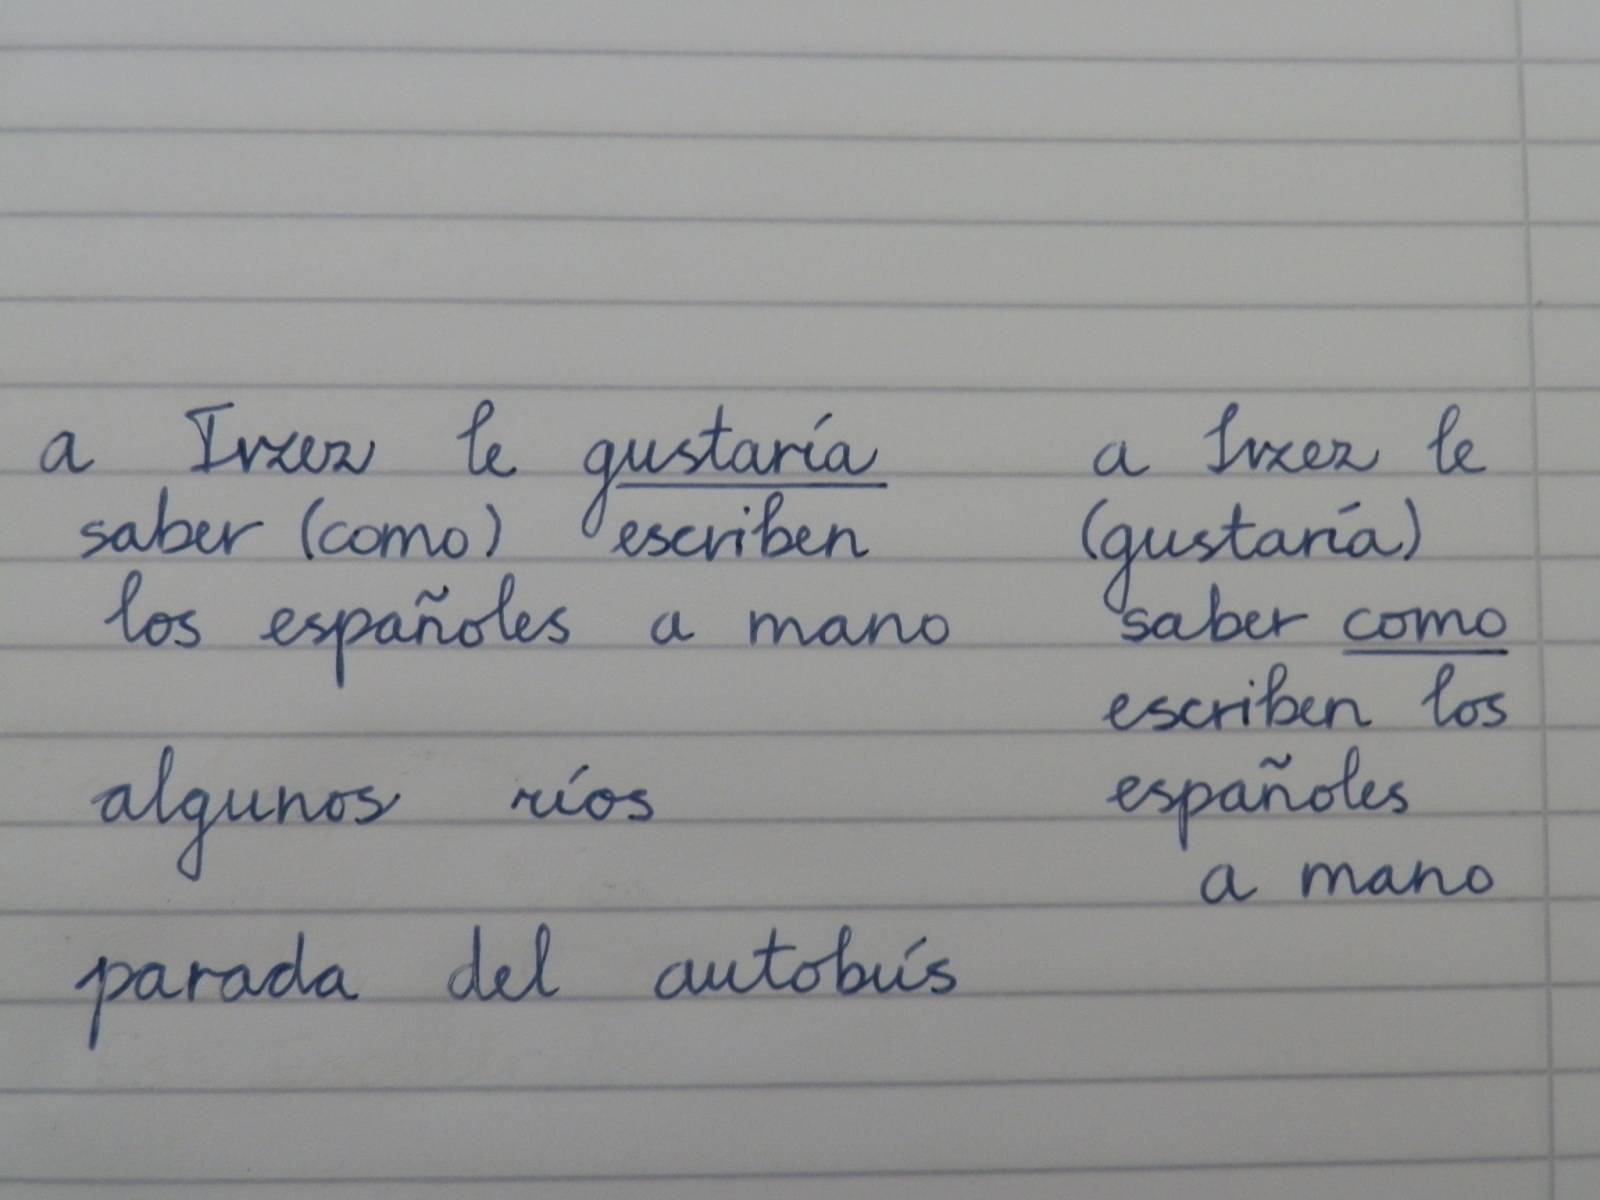 a Irzez le gustaría
saber (como) escriben
los españoles a mano
algunos ríos
parada del autobús
a Irzez le
(gustaría)
saber como
escriben los
españoles
a mano